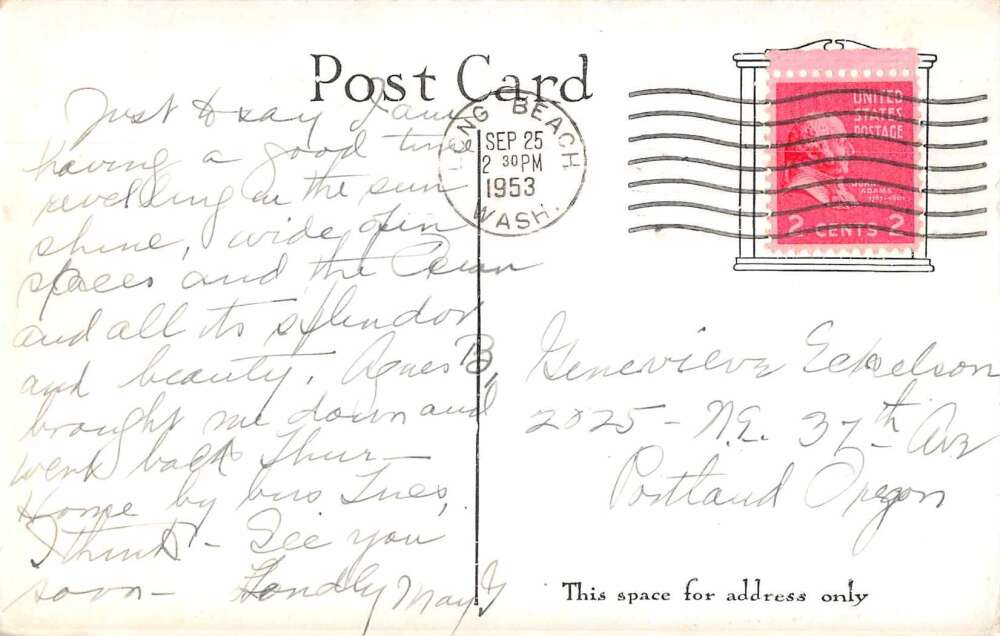 Post Card
Just to say I am
having a good time
revelling in the sun
shine, wide open
spaces and the Ocean
and all its splendor
and beauty. Agnes B,
brought me down and
went back Thur-
Home by bus Tues,
I think - See you
soon - Fondly May
LONG BEACH
SEP 25
2 30 PM
1953
WASH.
UNITED
STATES
POSTAGE
JOHN
ADAMS
2 CENTS 2
Genevieve Eckelson
2025 - N.E. 37th Ave
Portland Oregon
This space for address only